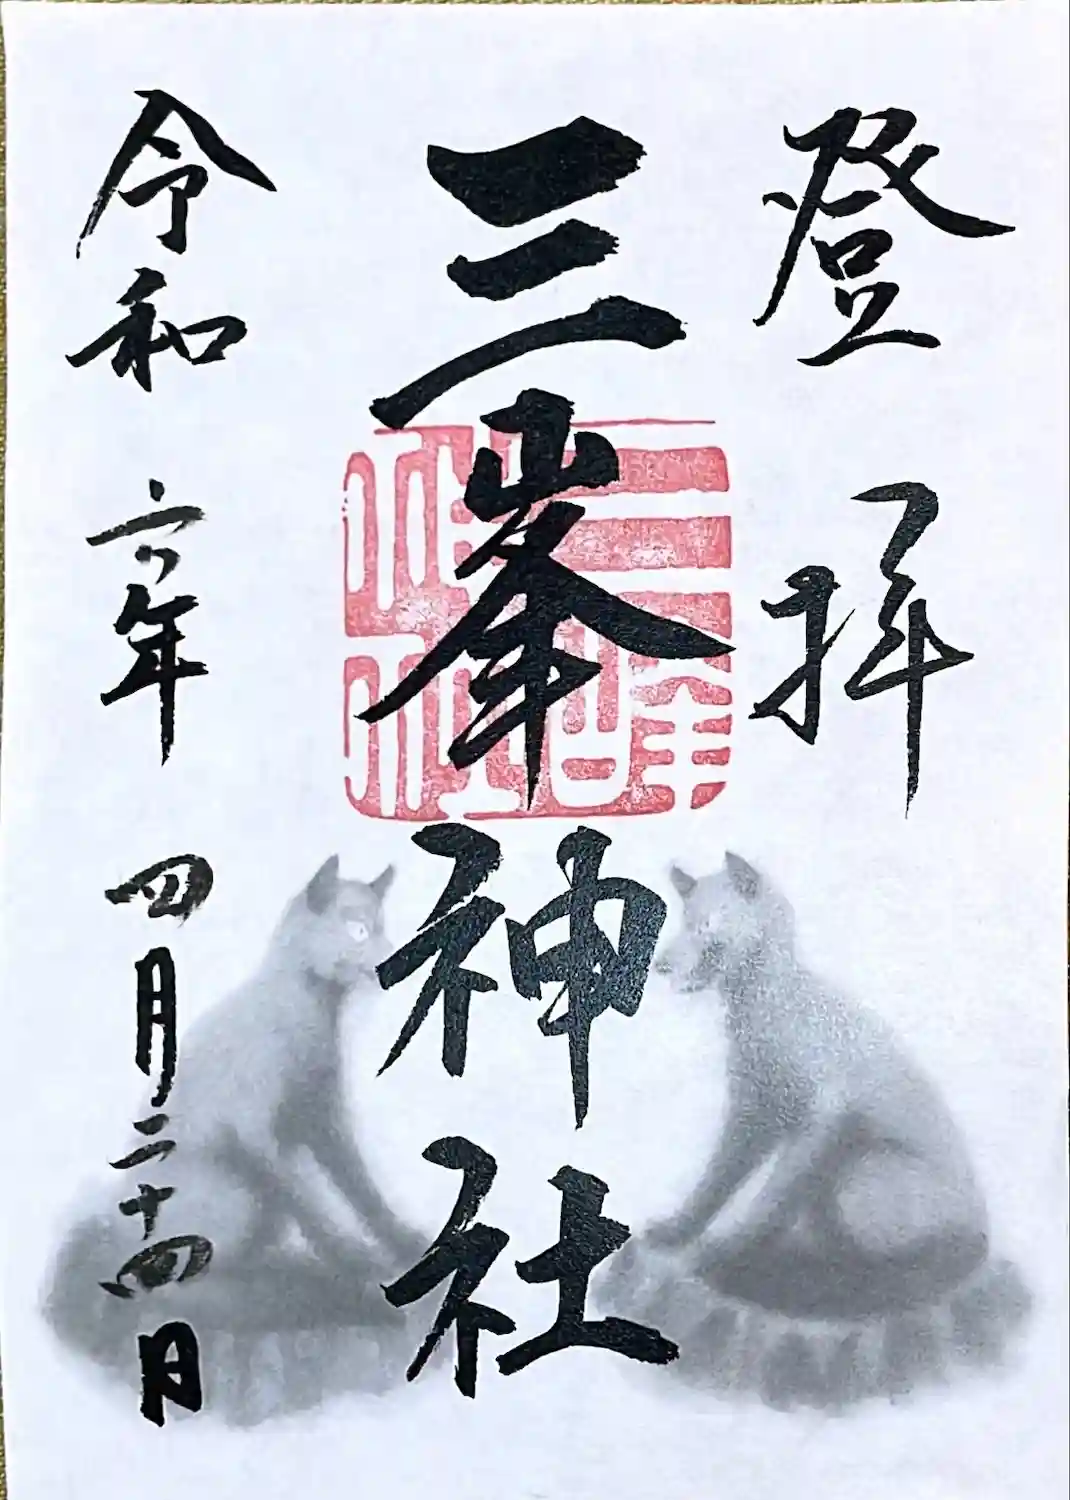 登拝
三峯神社
三峰神社
令和六年四月二十四日